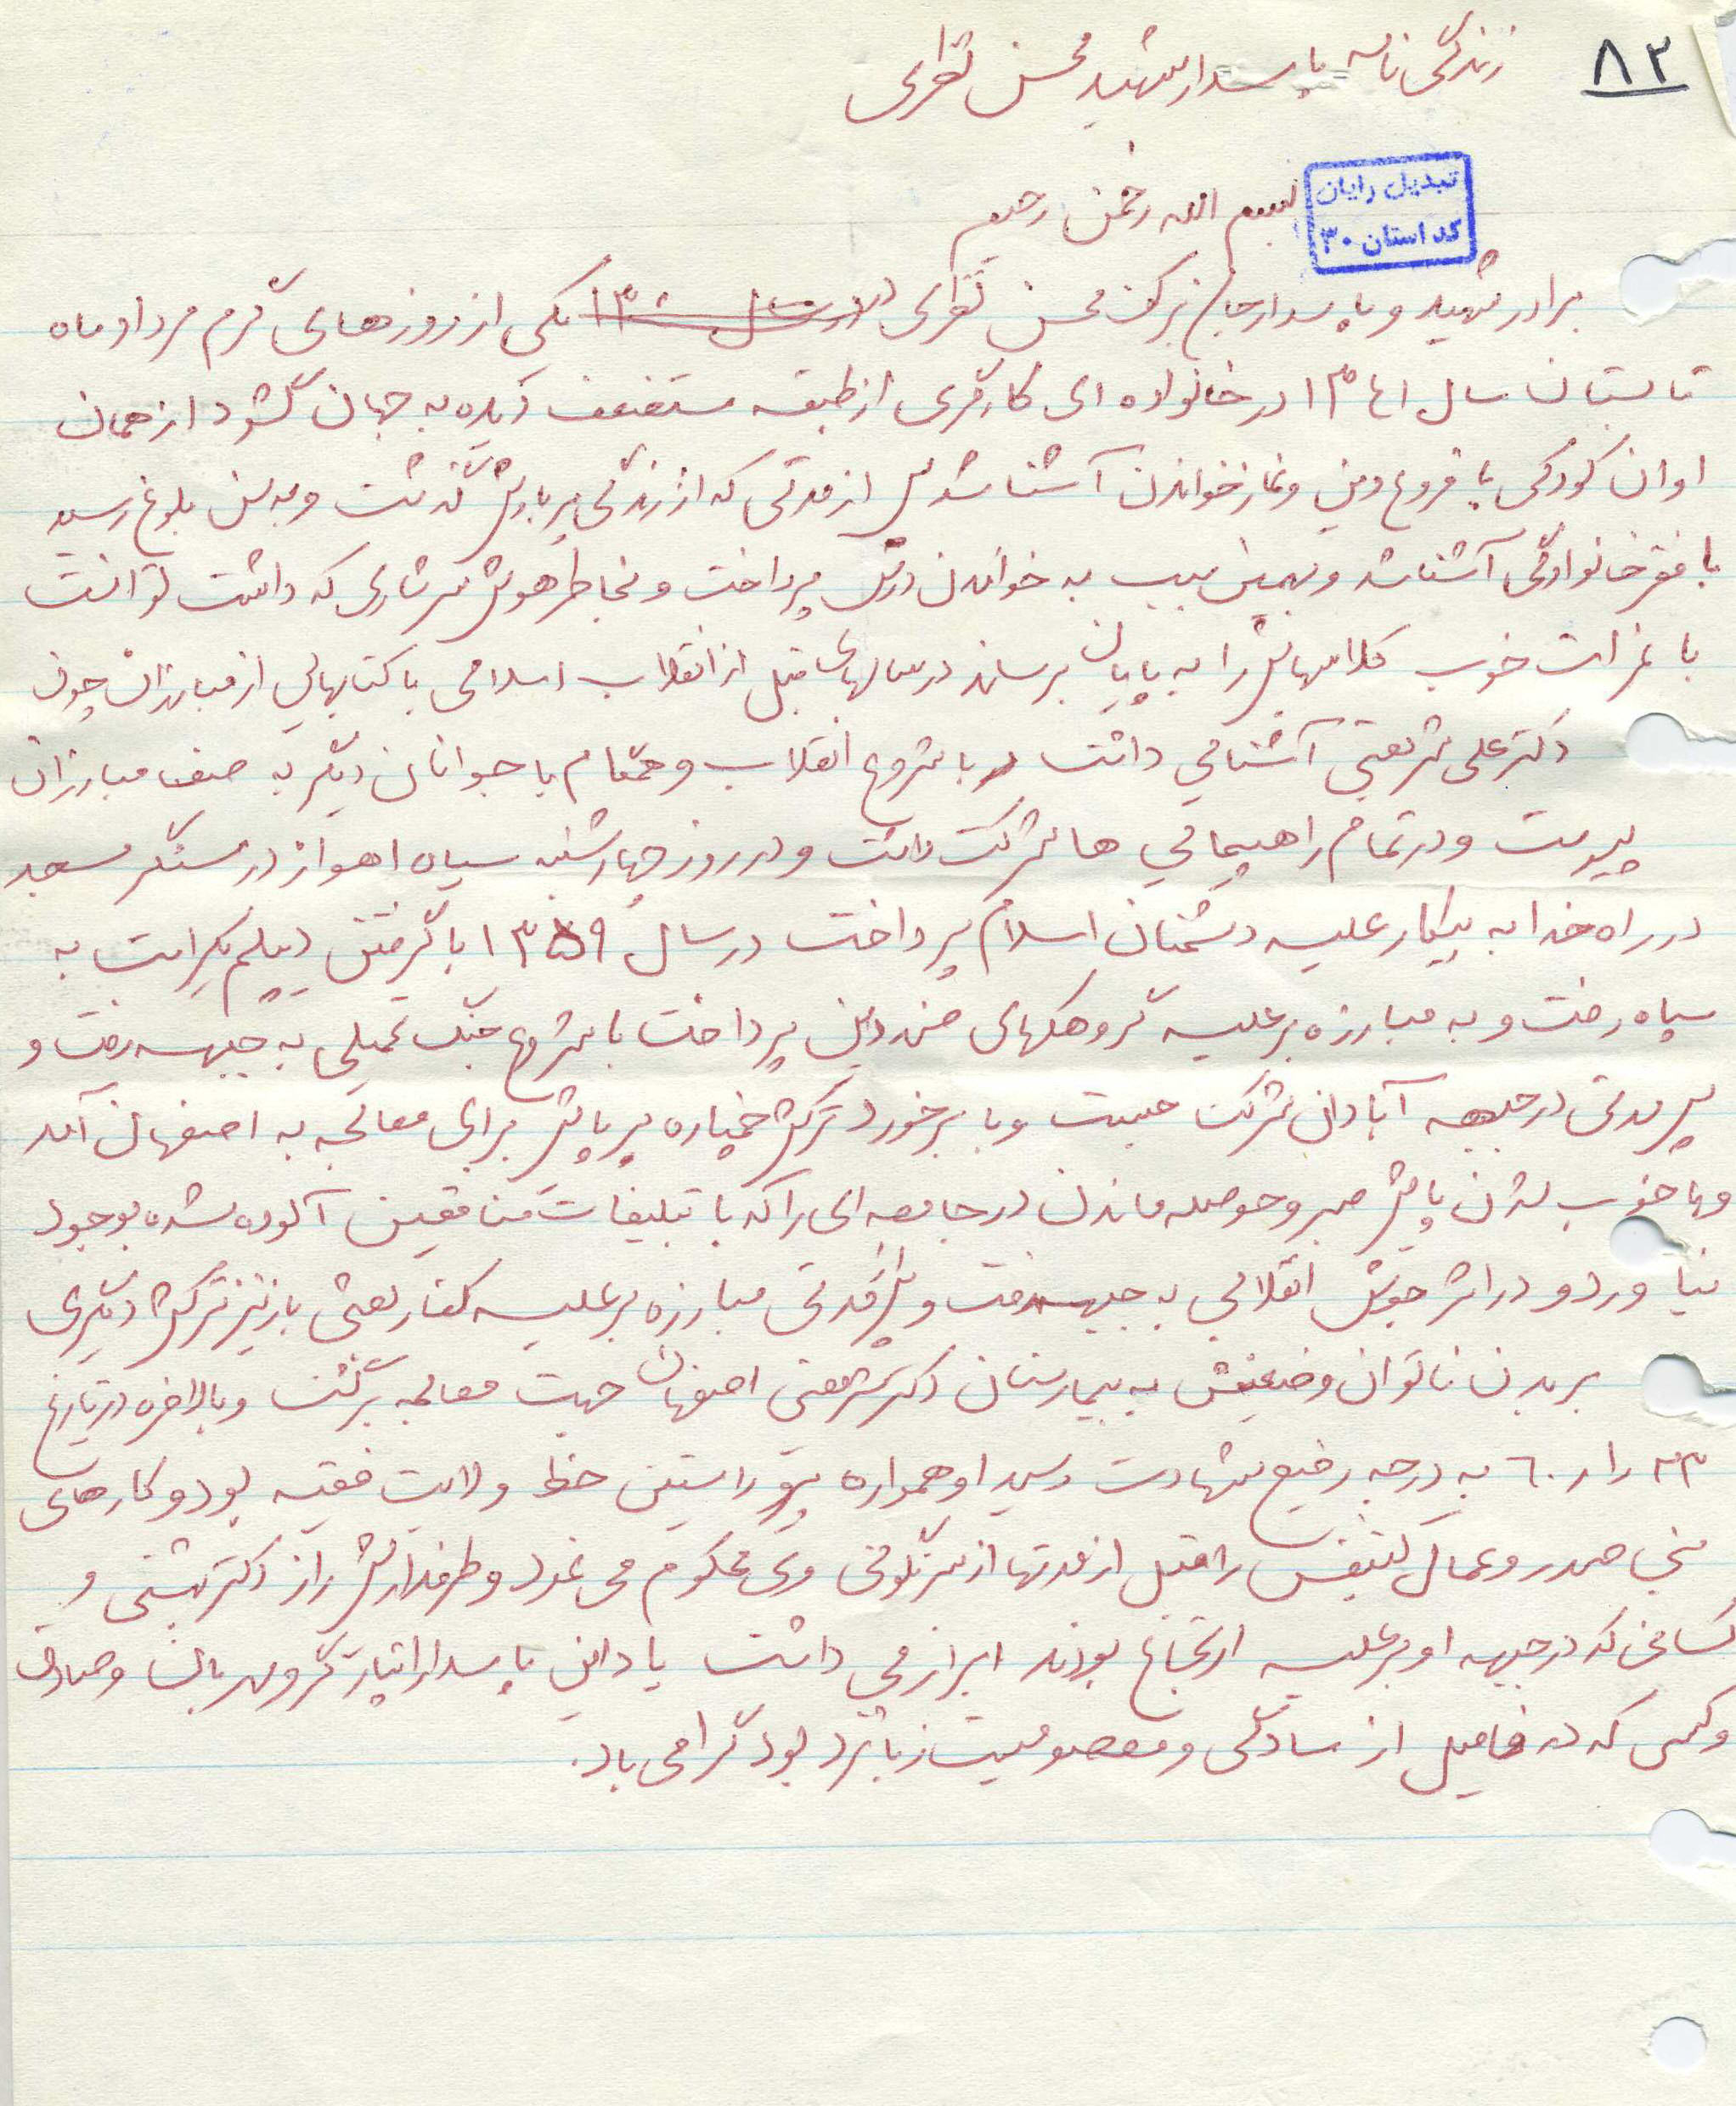 ۸۲
زندگی نامه پاسدار شهید محسن تقوای
تبدیل رایان
کد استان ۳۰
بسم الله رحمن رحیم
برادر شهید و پاسدار جان برکف محسن تقوای در یکی از روزهای گرم مرداد ماه
تابستان سال ۱۳۴۱ در خانواده ای کارگری از طبقه مستضعف دیده به جهان گشود از همان
اوان کودکی با فروع دین و نماز خواندن آشنا شد پس از مدتی که از زندگی پربارش گذشت و به سن بلوغ رسید
با فقر خانوادگی آشنا شد و بهمین سبب به خواندن درس پرداخت و بخاطر هوش سرشاری که داشت توانست
با نمرات خوب کلاسهایش را به پایان برساند در سالهای قبل از انقلاب اسلامی با کتابهایی از مبارزان چون
دکتر علی شریعتی آشنائی داشت با شروع انقلاب و همگام با جوانان دیگر به صف مبارزان
پیوست و در تمام راهپیمائی ها شرکت داشت و در روز چهارشنبه سیاه اهواز در سنگر مسجد
در راه خدا به پیکار علیه دشمنان اسلام پرداخت در سال ۱۳۵۹ با گرفتن دیپلم به
سپاه رفت و به مبارزه بر علیه گروهکهای ضد دین پرداخت با شروع جنگ تحمیلی به جبهه رفت و
پس مدتی در جبهه آبادان شرکت جست و با برخورد ترکش خمپاره بر پایش برای معالجه به اصفهان آمد
و با خوب شدن پایش صبر و حوصله ماندن در جامعه ای را که با تبلیغات منافقین آلوده شده بوجود
نیاورد و در اثر جوشش انقلابی به جبهه رفت و پس از مدتی مبارزه بر علیه کفار بعثی باز نیز ترکش دیگری
بر بدن ناتوان و ضعیفش به بیمارستان دکتر شریعتی اصفهان جهت معالجه برگشت و بالاخره در تاریخ
۶۰ به درجه رفیع شهادت رسید او همواره پیرو راستین خط ولایت فقیه بود و کارهای
بنی صدر و عمال کثیفش را قبل از مدتها از سرنگونی وی محکوم می نمود و طرفداریش را از دکتر بهشتی و
کسانی که در جبهه او بر علیه ارتجاع بودند ابراز می داشت یاد این پاسدار ایثارگر و مهربان و صادق
و کسی که در فامیل از سادگی و معصومیت زبانزد بود گرامی باد.